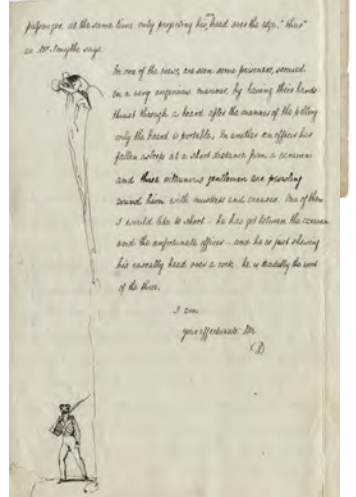 passenger at the same time only projecting his head over the edge, "thus"
as Mr. Smythe says.
In one of the views, are seen some prisoners, secured
in a very ingenious manner, by having their hands
thrust through a board after the manner of the pillory
only the board is portable. In another an officer has
fallen asleep at a short distance from a caravan
and three gentlemen are prowling
around him with muskets and One of them
I would like to shoot - he has got between the caravan
and the unfortunate officer - and he is just shewing
his rascally head over a rock. he is decidedly the worst
of the three.
I am
your affectionate